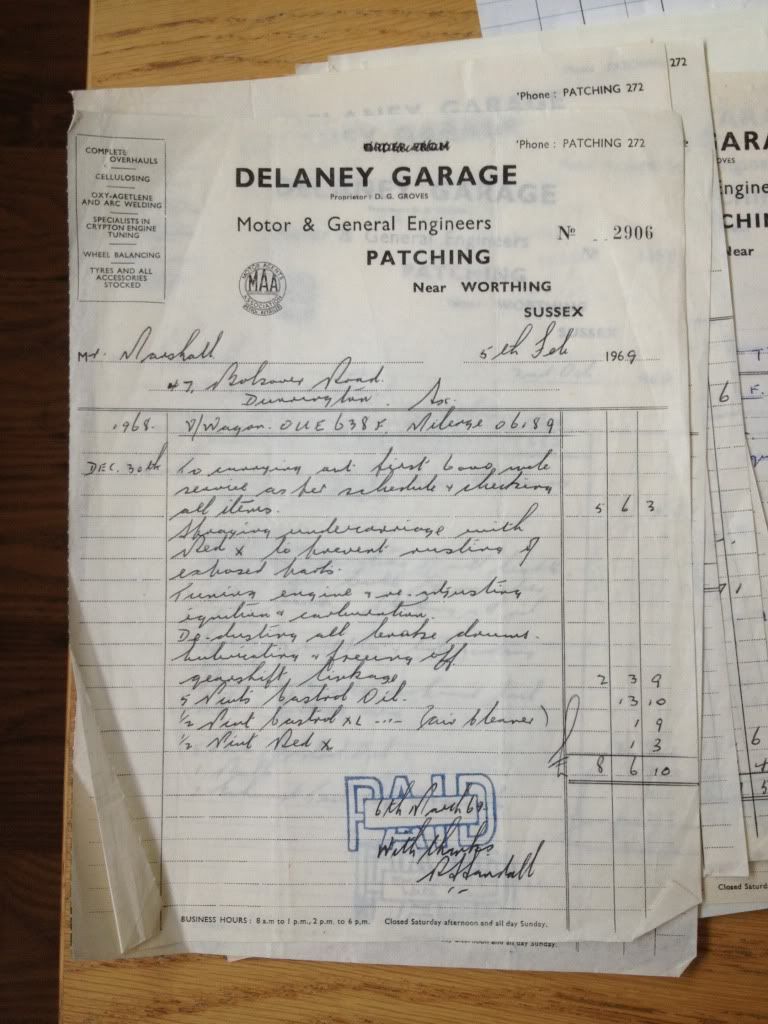 272
'Phone : PATCHING 272
ORDER FROM
'Phone : PATCHING 272
DELANEY GARAGE
Proprietor : D. G. GROVES
COMPLETE
OVERHAULS
CELLULOSING
OXY-AGETLENE
AND ARC WELDING
SPECIALISTS IN
CRYPTON ENGINE
TUNING
WHEEL BALANCING
TYRES AND ALL
ACCESSORIES
STOCKED
Motor & General Engineers
No 2906
PATCHING
Near WORTHING
SUSSEX
MOTOR AGENTS
MAA
ASSOCIATION
Mr. Marshall 5th Feb 1969
47, Bolsover Road.
Durrington. Sx.
1968. V/Wagon. OUE 638F. Mileage 06189
DEC. 30th To carrying out first 6000 mile
service as per schedule & checking
all items. 5 6 3
Spraying undercarriage with
Red x to prevent rusting of
exposed parts.
Tuning engine & re-adjusting
ignition & carburation.
De-dusting all brake drums.
Lubricating & freeing off
gearshift linkage 2 3 9
5 Pints Castrol Oil. 13 10
1/2 Pint Castrol XL ---- (air cleaner) 1 9
1/2 Pint Red x 1 3
£ 8 6 10
PAID
6th March 69.
With thanks
BUSINESS HOURS : 8 a.m to 1 p.m., 2 p.m. to 6 p.m. Closed Saturday afternoon and all day Sunday.
ny afternoon and all day Sunday.
ARA
OVES
ngine
CHI
Near
6
F.
6
5
Closed Saturday